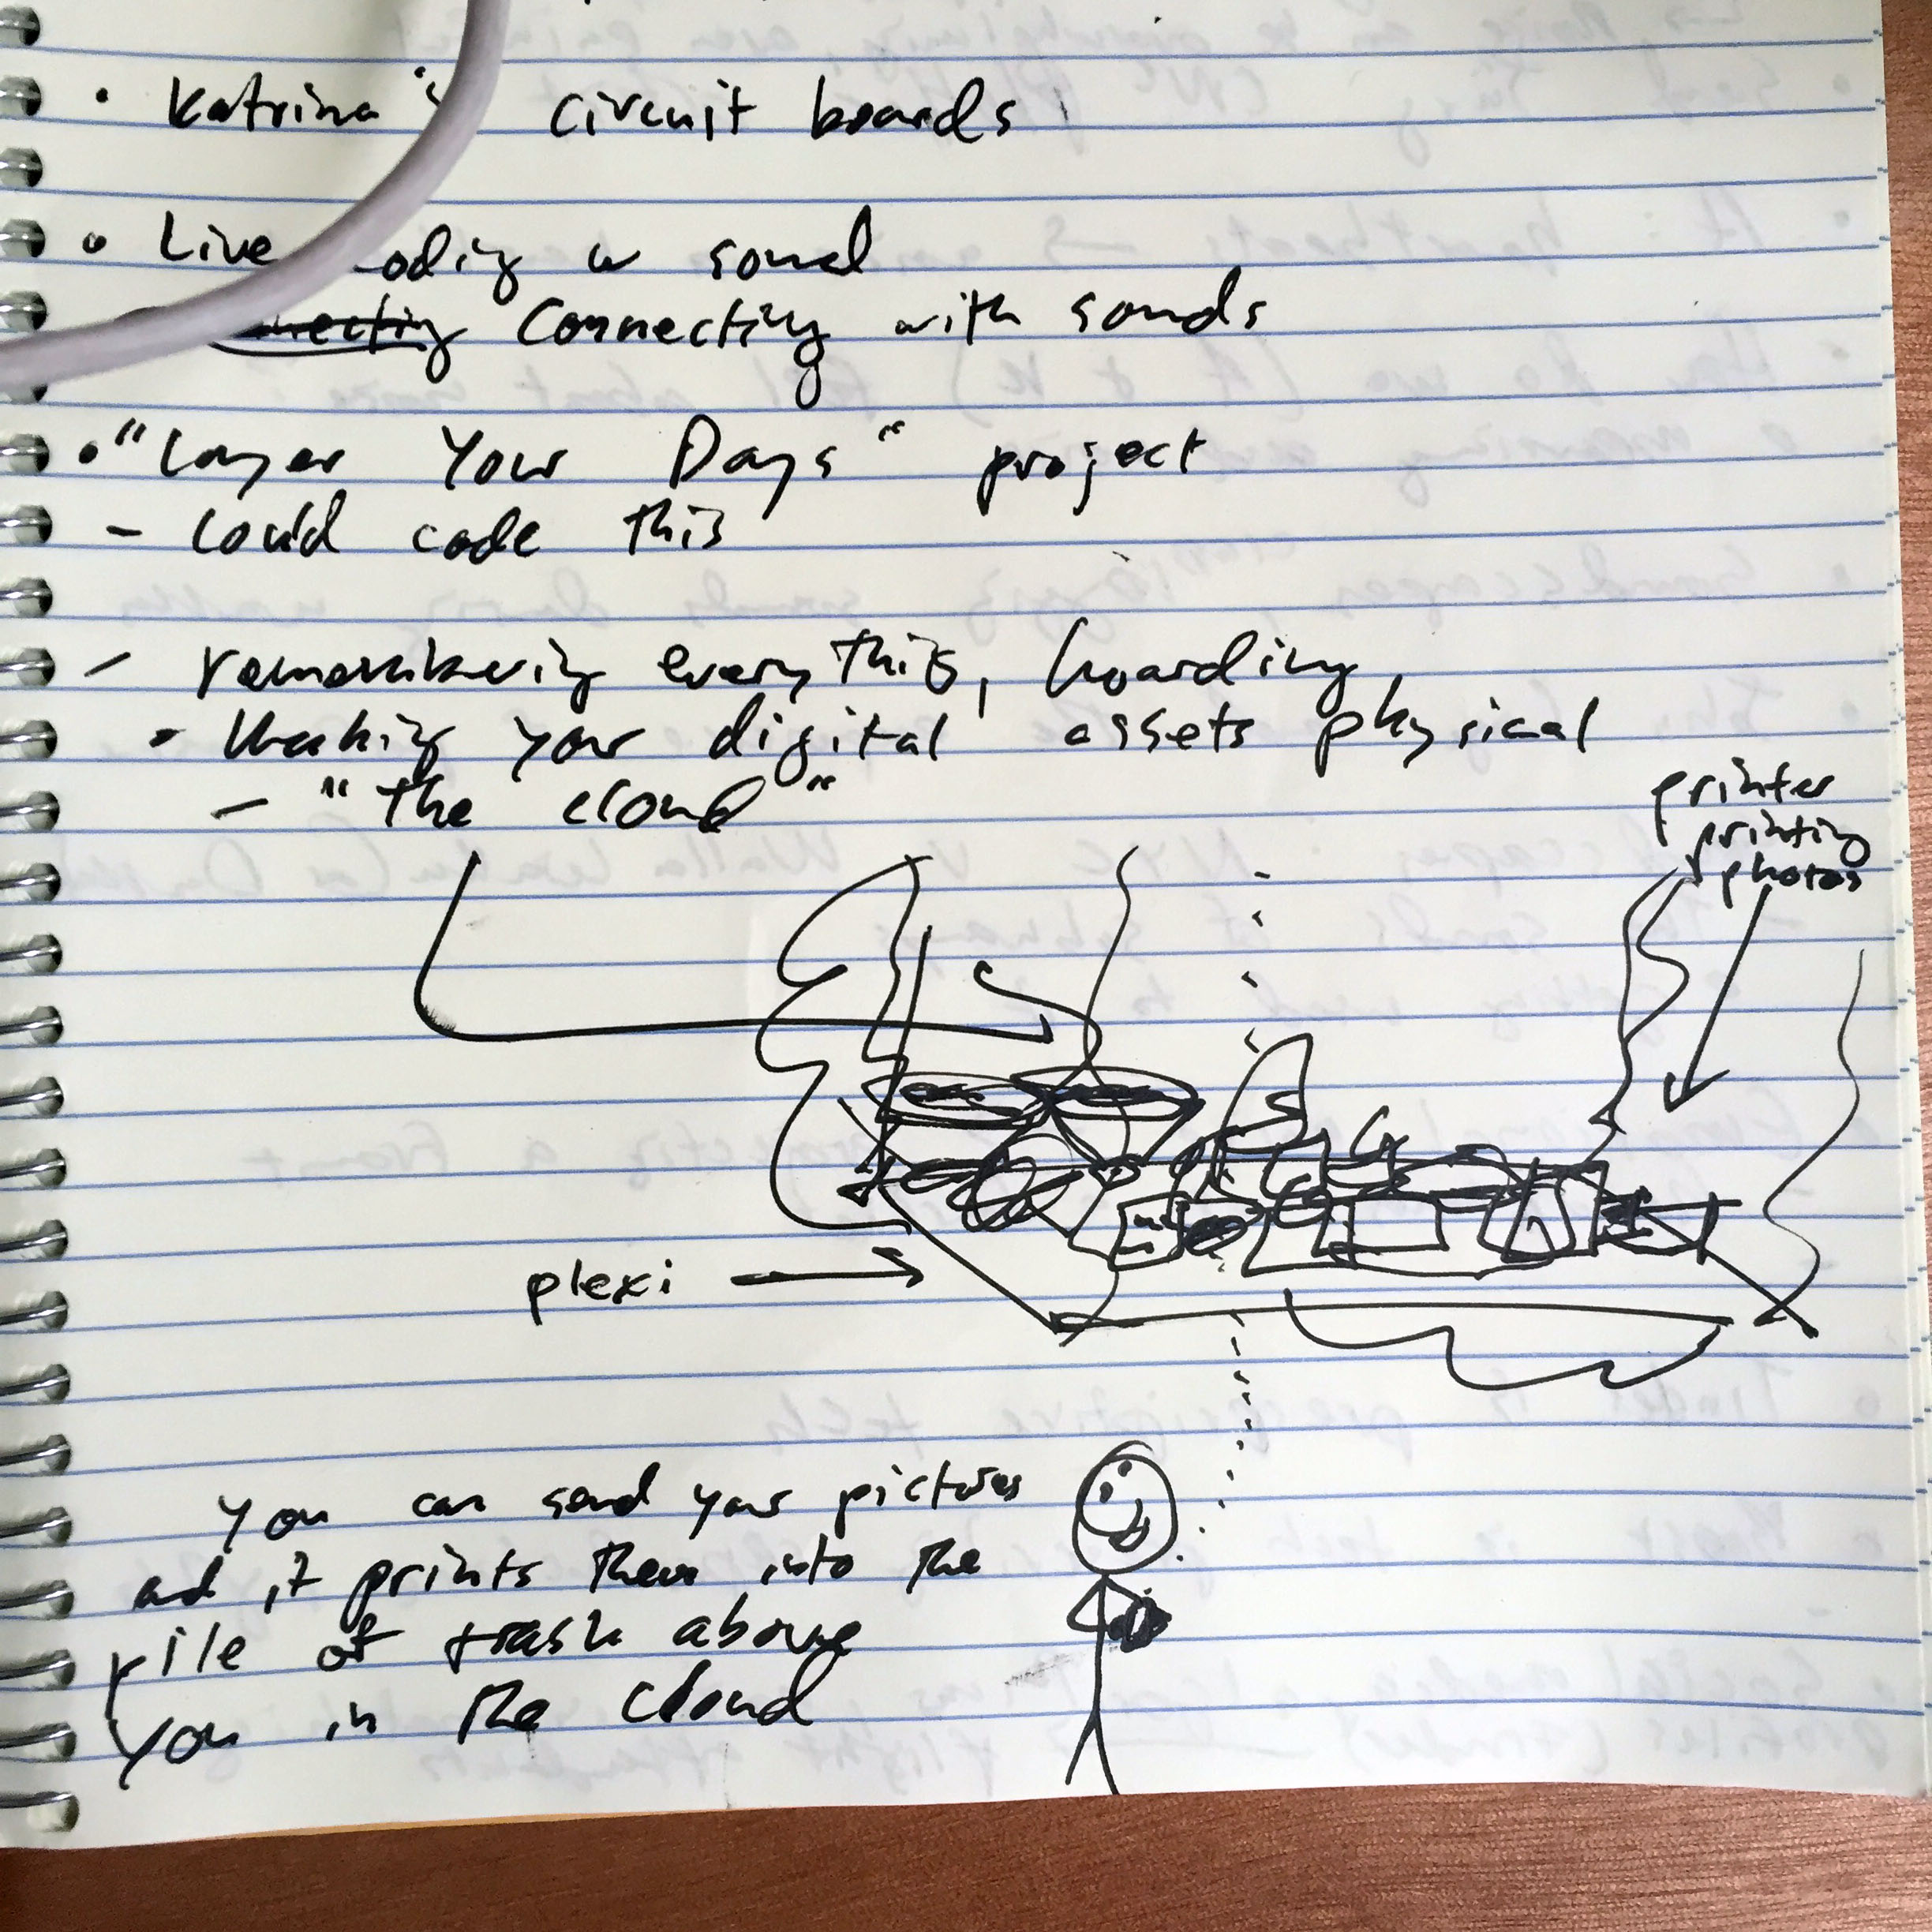 • Katrina's circuit boards
• Live coding w sound
Connecting with sounds
• "Layer Your Days" project
- Could code this
- remembering everything, hoarding
- Making your digital assets physical
- "the cloud"
printer
printing
photos
plexi →
you can send your pictures
and it prints them into the
pile of trash above
you in the cloud